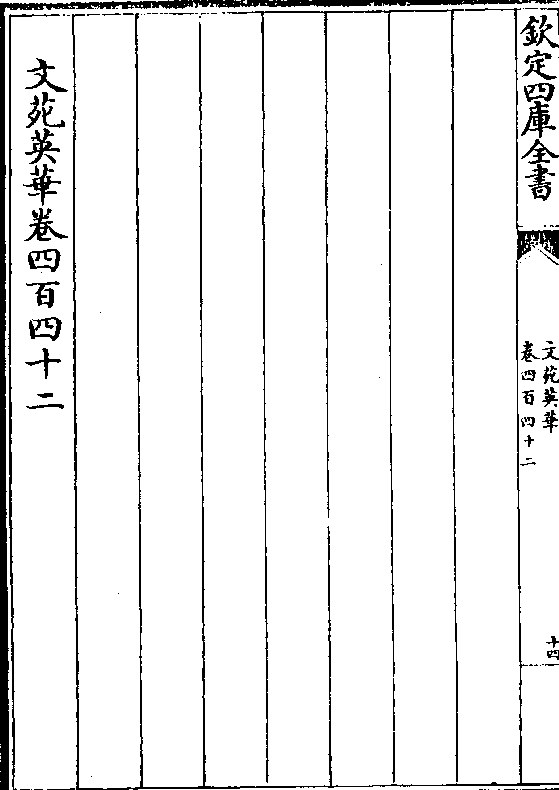 欽定四庫全書
文苑英華
卷四百四十二
十四
文苑英華卷四百四十二